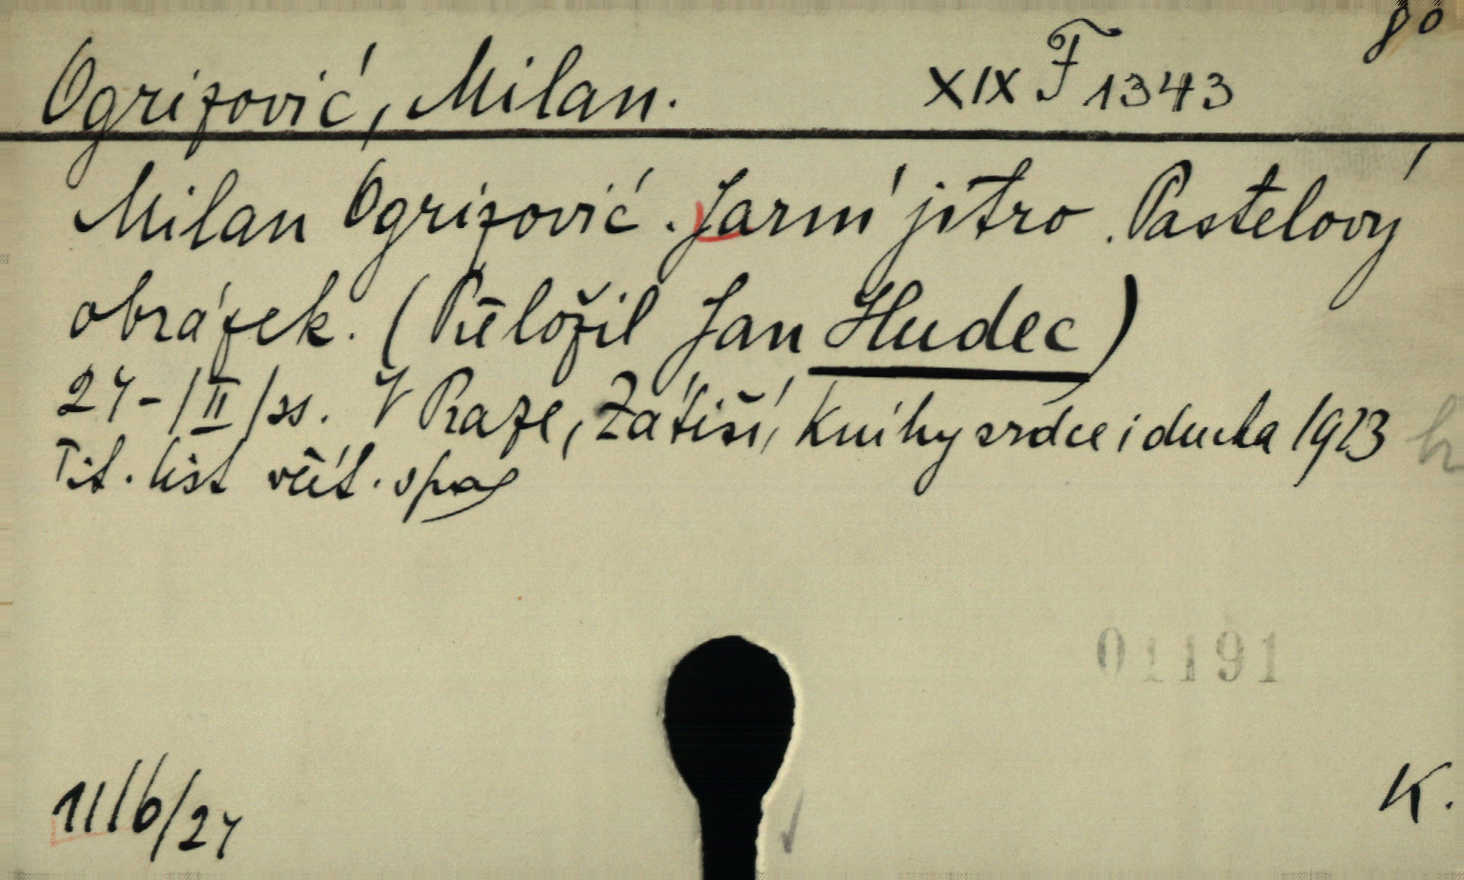 8o
Ogrizović, Milan. XIX F 1343
Milan Ogrizović. Jarní jitro. Pastelový
obrázek. (Přeložil Jan Hudec)
24-/II/ss. V Praze, Zátiší, Knihy srdce i ducha 1923
Tit. list včít.
01191
11/6/24
K.